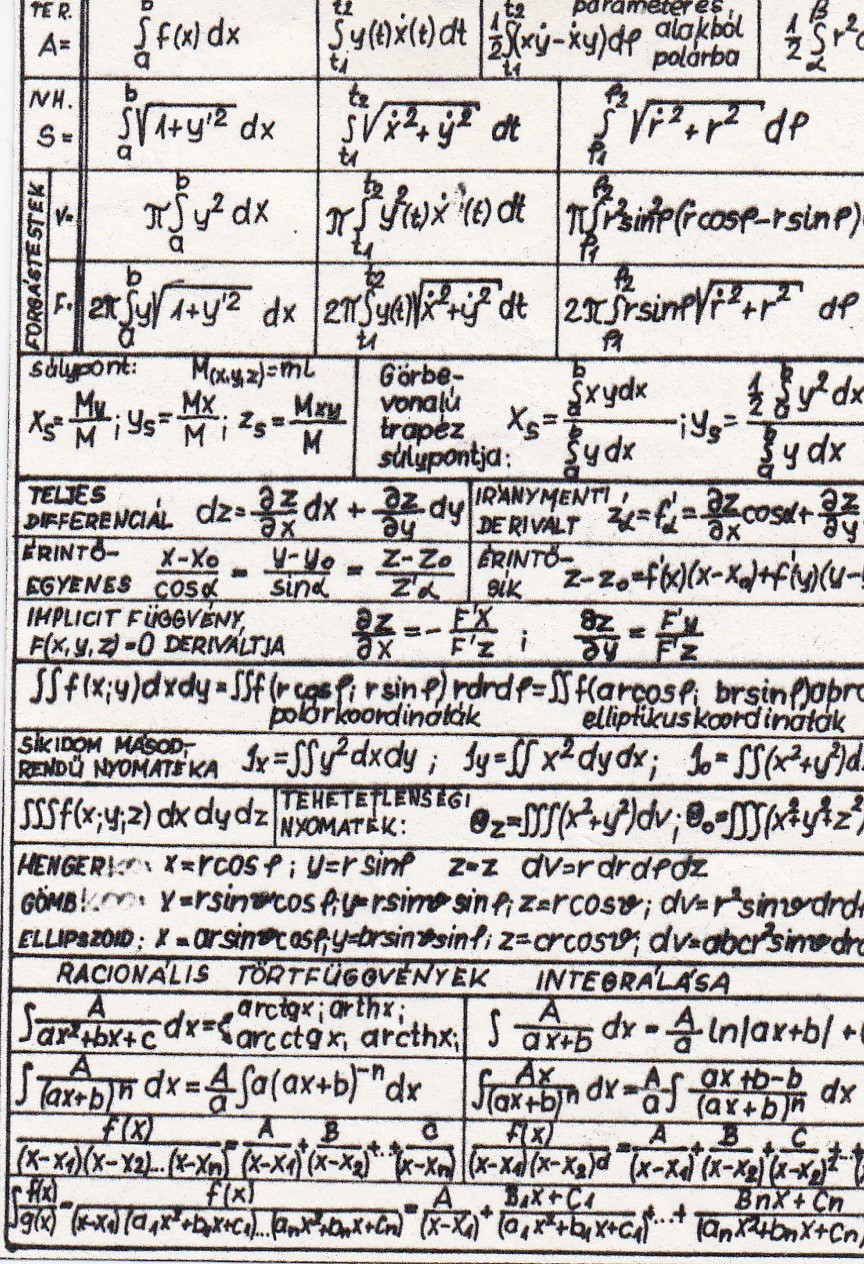 TER. A= b∫a f(x) dx t2∫t1 y(t)ẋ(t) dt 1/2 t2∫t1 (xẏ-ẋy)dρ parameteres, alakból polárba 1/2 β∫α r²
ÍVH. S= b∫a √1+y'² dx t2∫t1 √ẋ²+ẏ² dt ρ2∫ρ1 √ṙ²+r² dρ
FORGÁSTESTEK
V= π b∫a y² dx π t2∫t1 y²(t)ẋ (t) dt π ρ2∫ρ1 r²sin²ρ(ṙcosρ-rsinρ)
F= 2π b∫a y√1+y'² dx 2π t2∫t1 y(t)√ẋ²+ẏ² dt 2π ρ2∫ρ1 rsinρ√ṙ²+r² dρ
súlypont: M(x,y,z)=ml
Xs= My/M ; ys= Mx/M ; zs= Mxy/M
Görbe-
vonalú
trapéz
súlypontja:
Xs= b∫a xydx / b∫a y dx ; ys= 1/2 b∫a y² dx / b∫a y dx
TELJES
DIFFERENCIÁL dz= ∂z/∂x dx + ∂z/∂y dy
IRÁNYMENTI
DERIVÁLT z'α=f'α= ∂z/∂x cosα+ ∂z/∂y
ÉRINTŐ-
EGYENES x-x0/cosα = y-y0/sinα = z-z0/z'α
ÉRINTŐ-
SÍK z-z0=f'(x)(x-x0)+f'(y)(y-
IMPLICIT FÜGGVÉNY,
F(x,y,z)=0 DERIVÁLTJA ∂z/∂x =- F'x/F'z ; ∂z/∂y = F'y/F'z
∫∫f(x;y)dxdy=∫∫f(rcosρ; rsinρ) rdrdρ=∫∫f(arcosρ; brsinρ)abr
polárkoordináták elliptikus koordináták
SÍKIDOM MÁSOD-
RENDŰ NYOMATÉKA Ix=∫∫y²dxdy ; Iy=∫∫x²dydx; I0=∫∫(x²+y²)d
∫∫∫f(x;y;z) dx dy dz
TEHETETLENSÉGI
NYOMATÉK: Θz=∫∫∫(x²+y²)dv; Θ0=∫∫∫(x²+y²+z²)
HENGER x=rcosρ; y=rsinρ z=z dv=rdrdρdz
GÖMB x=rsinϑcosρ;y=rsinϑsinρ; z=rcosϑ; dv=r²sinϑdrd
ELLIPSZOID: x=arsinϑcosρ;y=brsinϑsinρ; z=crcosϑ; dv=abcr²sinϑdrd
RACIONÁLIS TÖRTFÜGGVÉNYEK INTEGRÁLÁSA
∫ A/ax²+bx+c dx={ arctgx; arthx; arcctgx; arcthx; ∫ A/ax+b dx = A/a ln|ax+b| +
∫ A/(ax+b)ⁿ dx= A/a ∫a(ax+b)⁻ⁿ dx ∫ Ax/(ax+b)ⁿ dx= A/a ∫ ax+b-b/(ax+b)ⁿ dx
f(x)/(x-x1)(x-x2)...(x-xn) = A/(x-x1) + B/(x-x2) +... C/(x-xn) f(x)/(x-x1)(x-x2)ᵈ = A/(x-x1) + B/(x-x2) + C/(x-x2)² +..+
∫ f(x)/g(x) = f(x)/(x-x1)(a1x²+b1x+c1)...(anx²+bnx+cn) = A/(x-x1) + B1x+C1/(a1x²+b1x+c1) +...+ Bnx+Cn/(anx²+bnx+cn)